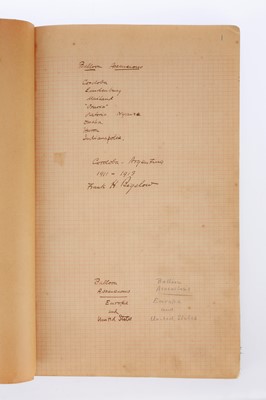 1
Balloon Ascensions
Cordoba
Lindenberg
Milan
"Omaha"
Victoria Nyanza
Omaha
Avalon
Indianapolis.
Cordoba - Argentina
1911 - 1917
Frank H Bigelow
Balloon
Ascensions
Europe
and
United States
Balloon
Ascensions
Europe
and
United States